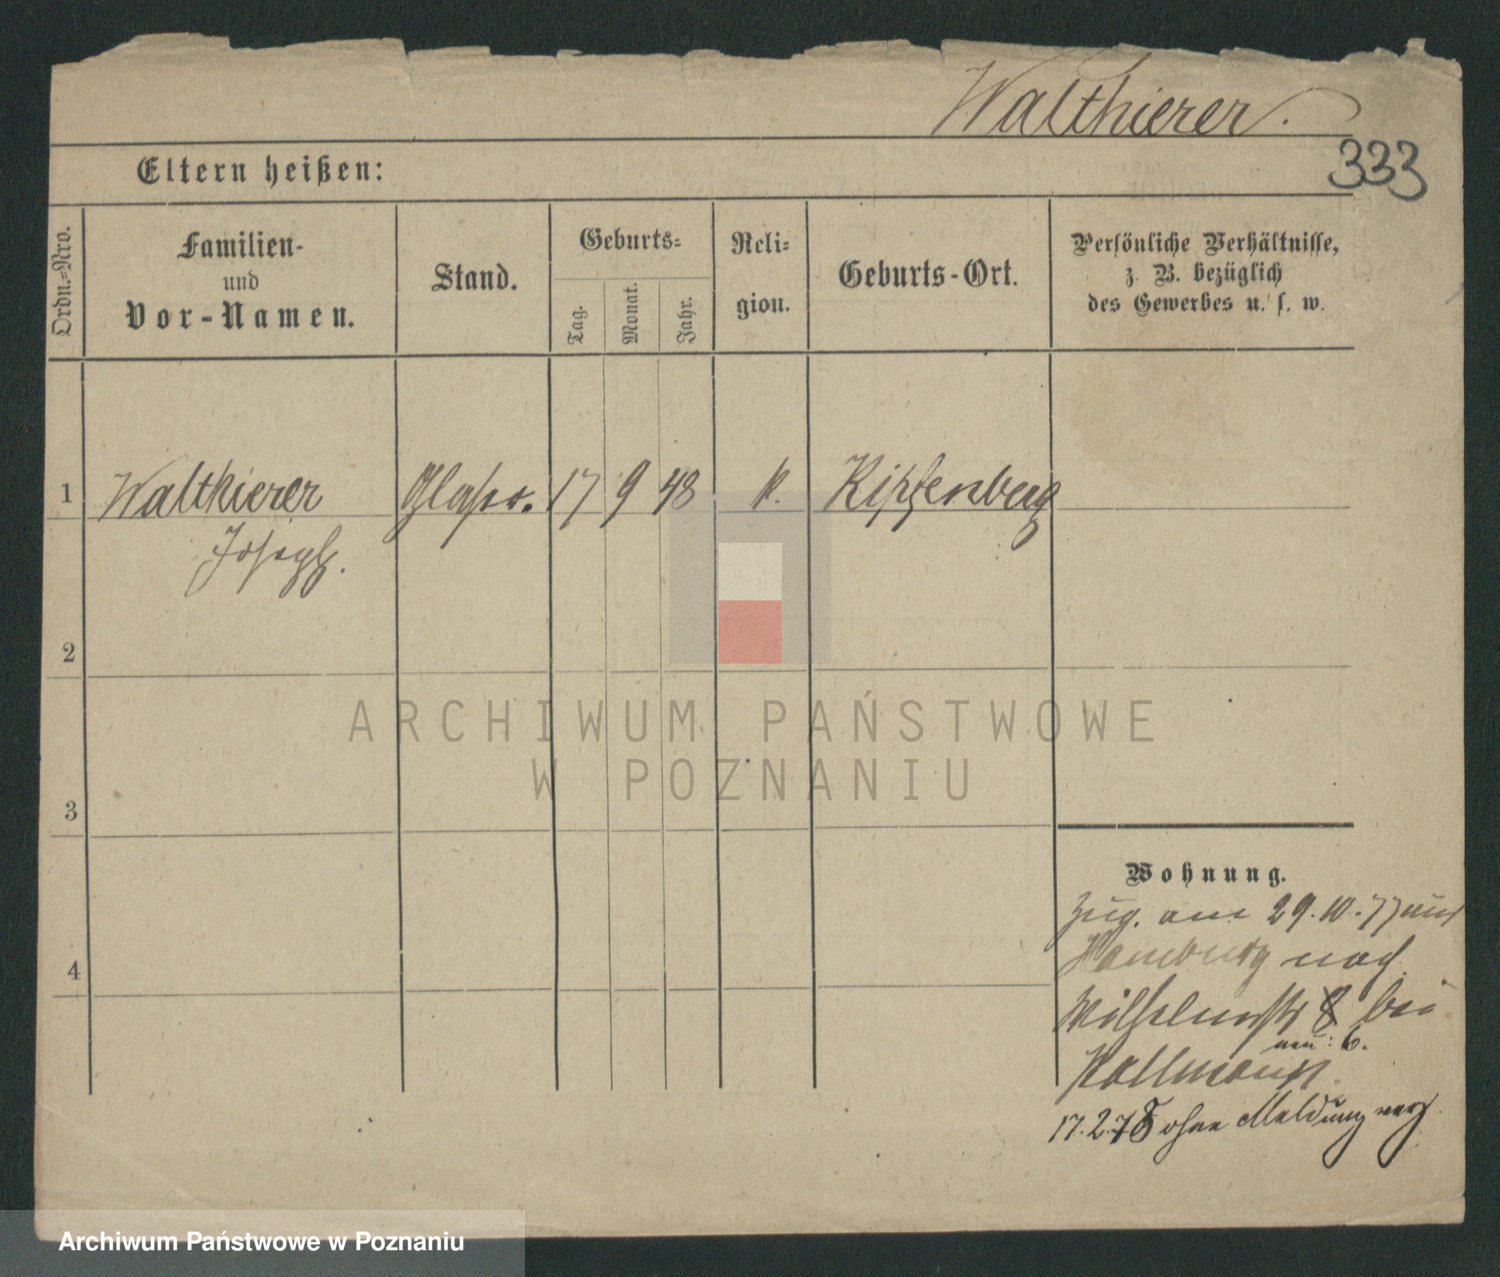 Walthierer.
333
Eltern heißen:
Ordn.=Nro.
Familien-
und
Vor-Namen.
Stand.
Geburts=
Tag.
Monat.
Jahr.
Reli=
gion.
Geburts-Ort.
Persönliche Verhältnisse,
z. B. bezüglich
des Gewerbes u. s. w.
1 Walthierer Glaser. 17 9 48 k. Kipfenberg
Joseph.
2
3
4
Wohnung.
Zug. am 29.10.77 aus
Hamburg nach
Wilhelmstr 8 bei
neu: 6.
Kallmann.
17.2.78 ohne Meldung verz.
ARCHIWUM PAŃSTWOWE
W POZNANIU
Archiwum Państwowe w Poznaniu